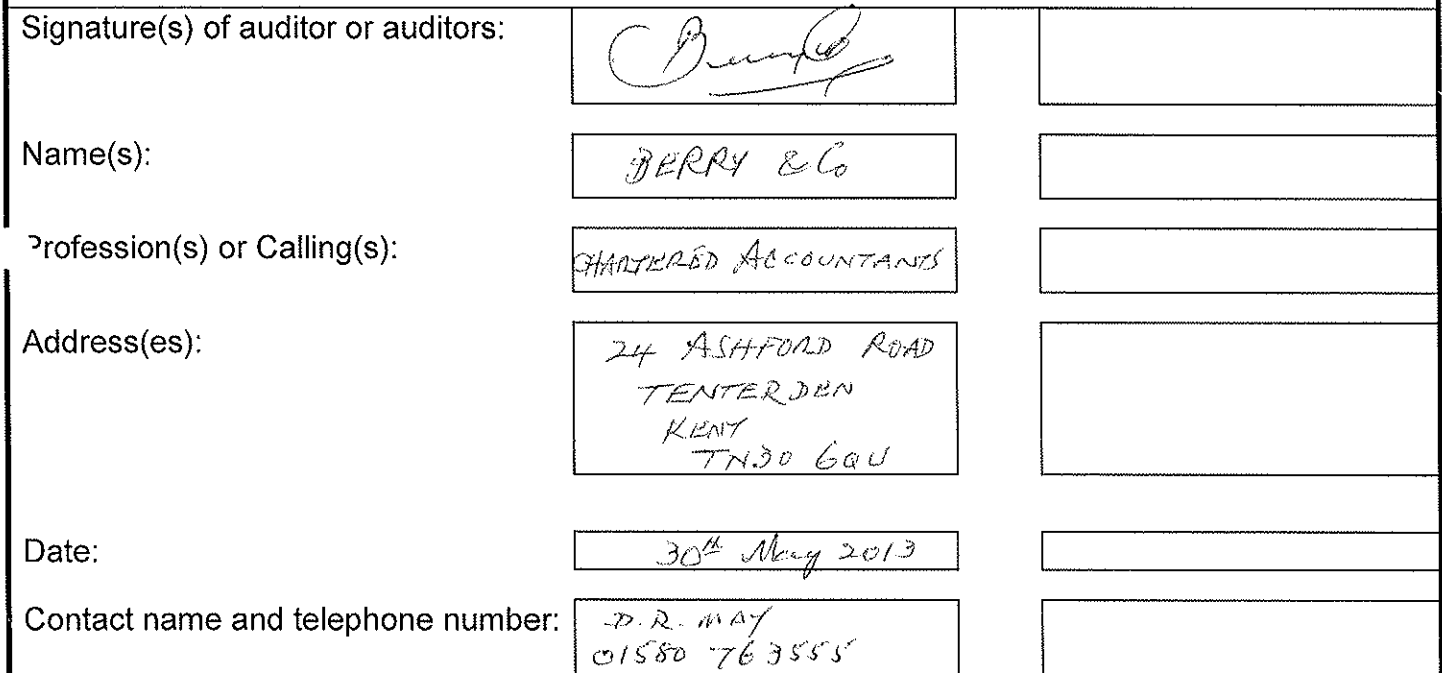 Signature(s) of auditor or auditors:
Berry & Co
Name(s):
BERRY & Co
Profession(s) or Calling(s):
CHARTERED ACCOUNTANTS
Address(es):
24 ASHFORD ROAD
TENTERDEN
KENT
TN30 6QU
Date:
30th May 2013
Contact name and telephone number:
D.R. MAY
01580 763555